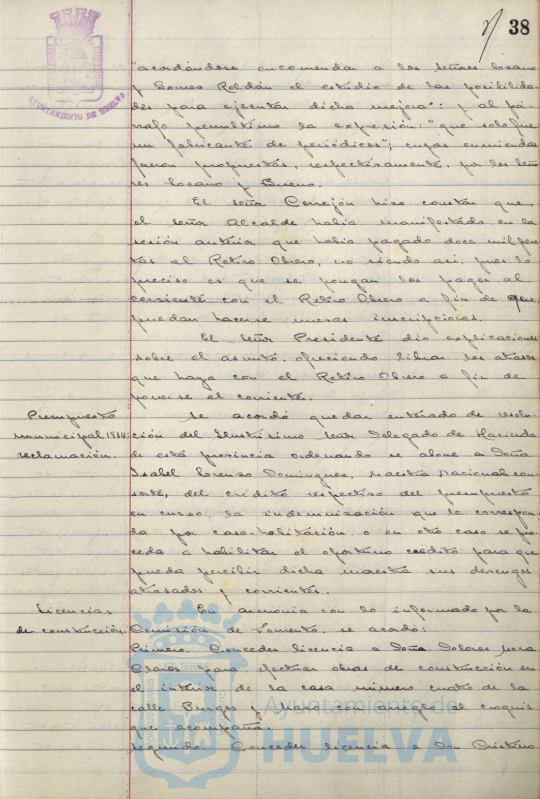 38
AYUNTAMIENTO DE HUELVA
"acordándose encomendar a los señores Lozano
y Gomez Roldán el estudio de las posibilida-
des para ejecutar dicha mejora"; y al pá-
rrafo penultimo la expresión: "que solo fue
un fabricante de periódicos"; cuyas enmiendas
fueron propuestas, respectivamente, por los seño-
res Lozano y Bueno.
El señor Cerrejón hizo constar que,
el señor Alcalde habia manifestado en la
sesión anterior que habia pagado doce mil pese-
tas al Retiro Obrero, no siendo asi, pues lo
preciso es que se pongan los pagos al
corriente con el Retiro Obrero a fin de que
puedan hacerse nuevas inscripciones.
El señor Presidente dio explicaciones
sobre el asunto, ofreciendo librar los atrasos
que haya con el Retiro Obrero a fin de
ponerse al corriente.
Presupuesto
municipal 1934:
reclamación.
Se acordó quedar enterado de resolu-
ción del Ilustrisimo señor Delegado de Hacienda
de esta provincia ordenando se abone a Doña
Isabel Lorenzo Dominguez, Maestra Nacional con-
sorte, del crédito respectivo del presupuesto
en curso, la indemnización que le correspon-
da por casa-habitación, o en otro caso se pro-
ceda a habilitar el oportuno credito para que
pueda percibir dicha maestra sus devengos
atrasados y corrientes.
Licencias
de construcción.
En armonia con lo informado por la
Comisión de Fomento, se acordó:
Primero. Conceder licencia a Doña Dolores Mora
Claros para efectuar obras de construcción en
el interior de la casa número cuatro de la
calle Burgos y Mazo con arreglo al croquis
que acompaña.
Segundo. Conceder licencia a Don Cristino
Ayuntamiento de
HUELVA